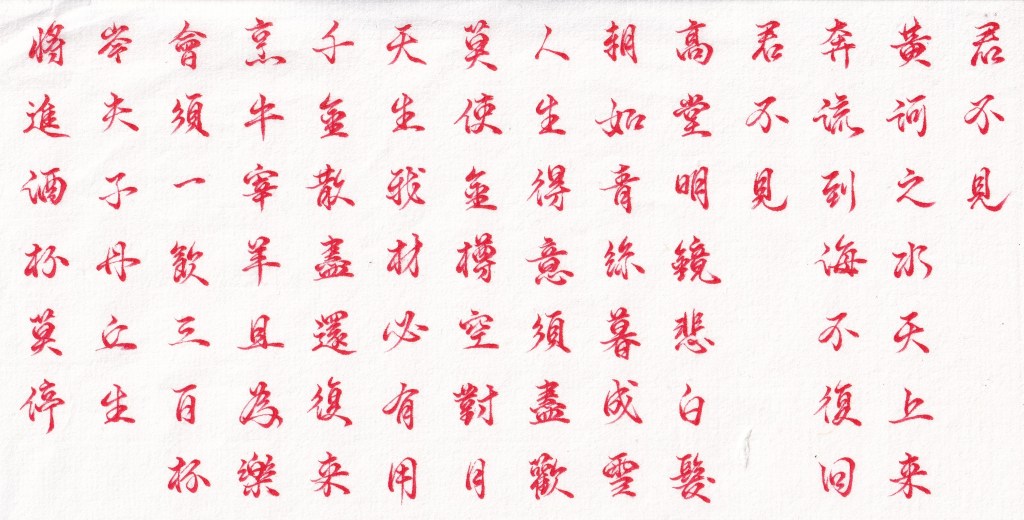 君不見
黃河之水天上来
奔流到海不復回
君不見
高堂明鏡悲白髮
朝如青絲暮成雪
人生得意須盡歡
莫使金樽空對月
天生我材必有用
千金散盡還復来
烹牛宰羊且為樂
會須一飲三百杯
岑夫子丹丘生
將進酒杯莫停